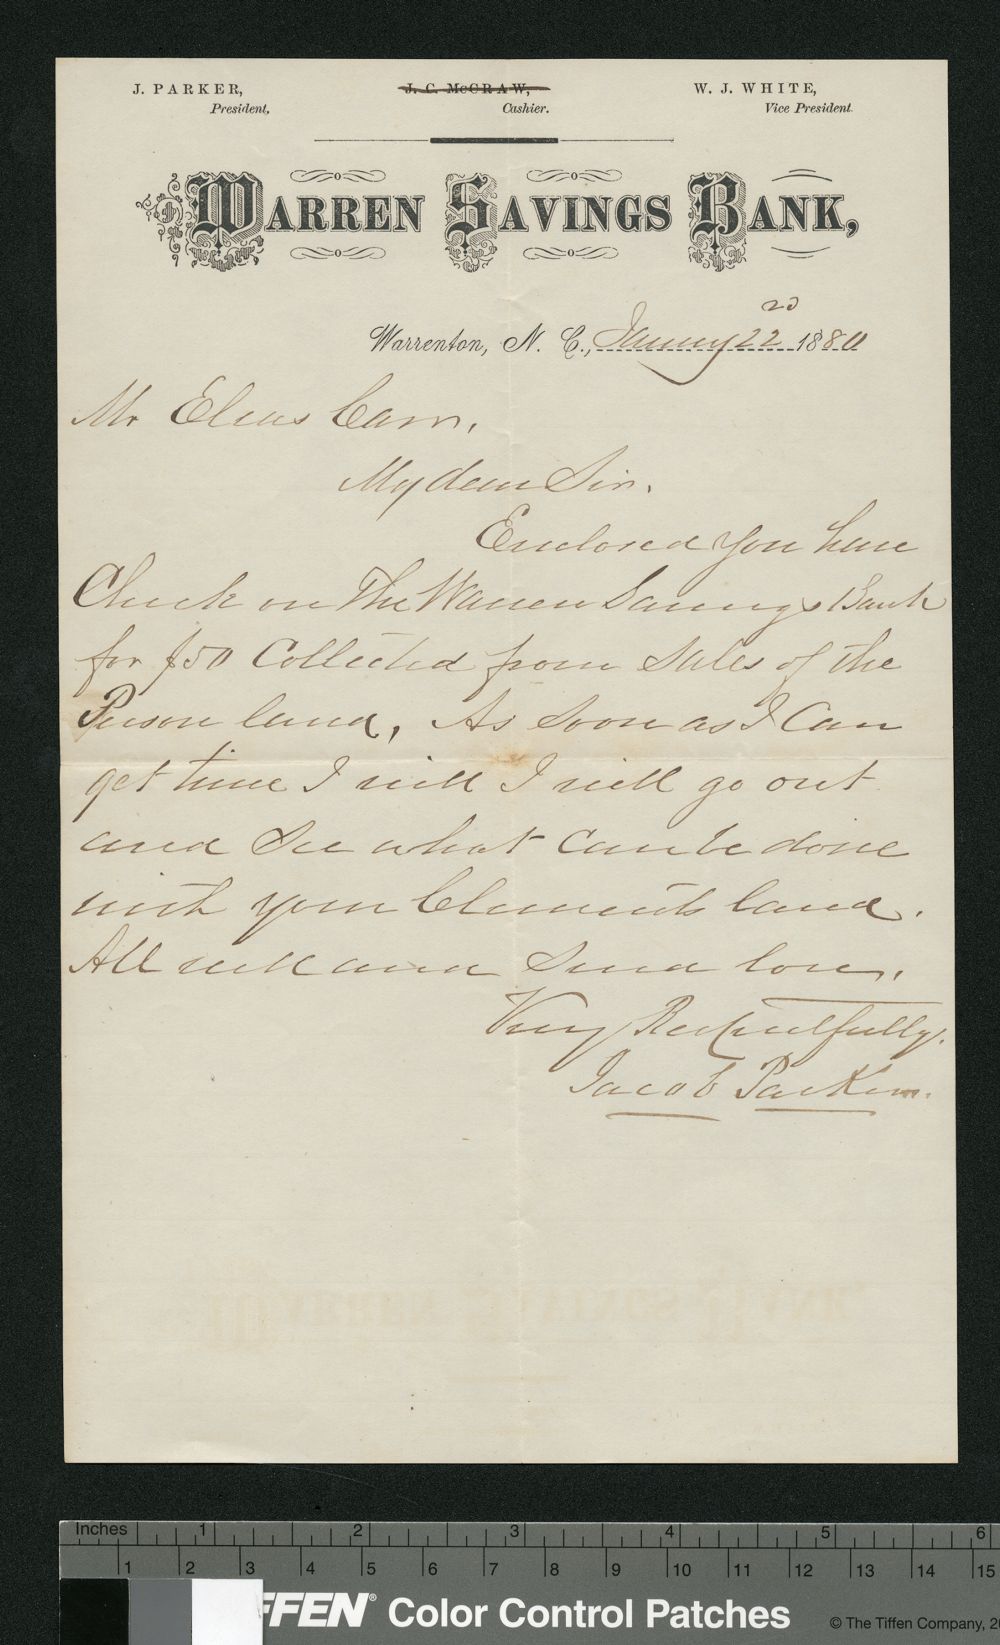 J. PARKER,
President,
J. C. McCRAW,
Cashier.
W. J. WHITE,
Vice President.
WARREN SAVINGS BANK,
Warrenton, N. C., January 22nd 1880
Mr Elias Carr,
My dear Sir,
Enclosed you have
Check on The Warren Savings Bank
for $50 Collected from Sales of the
Person land, As Soon as I Can
get time I will I will go out
and See what can be done
with your Clements land.
All well and Send love,
Very Respectfully,
Jacob Parker.
Inches 1 2 3 4 5 6
1 2 3 4 5 6 7 8 9 10 11 12 13 14 15
FFEN® Color Control Patches
© The Tiffen Company, 20